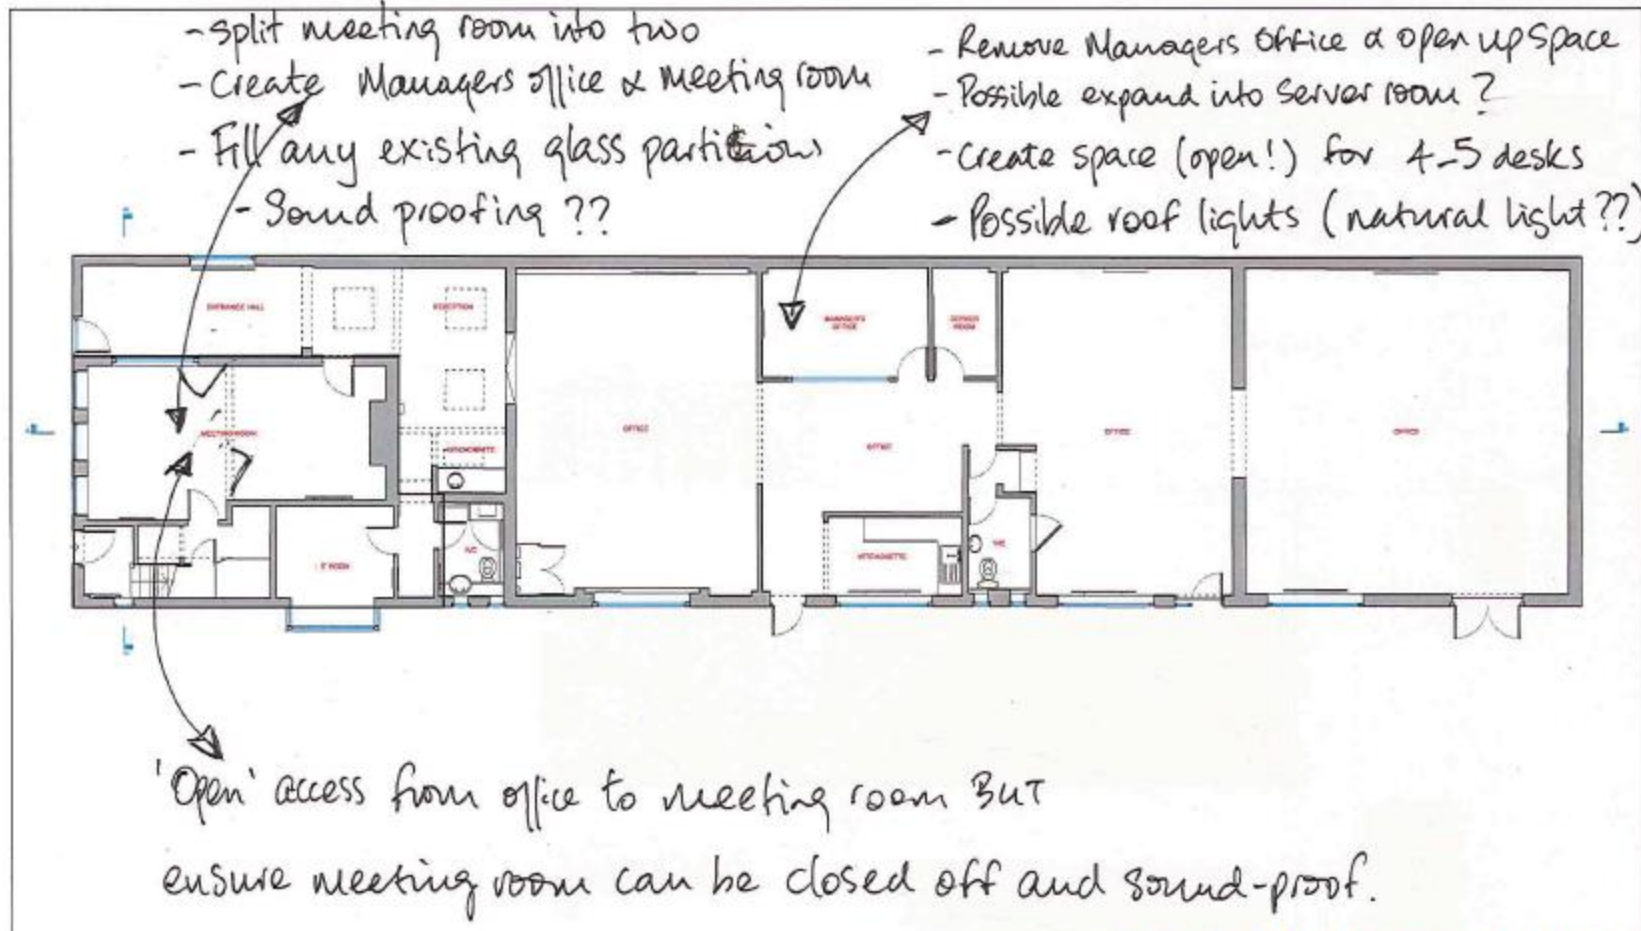 - Split meeting room into two
- Create Managers office & meeting room
- Fill any existing glass partitions
- Sound proofing ??
- Remove Managers Office & open up space
- Possible expand into Server room ?
- Create space (open!) for 4-5 desks
- Possible roof lights (natural light??)
ENTRANCE HALL
RECEPTION
MANAGER'S
OFFICE
SERVER
ROOM
MEETING ROOM
OFFICE
OFFICE
OFFICE
OFFICE
KITCHENETTE
WC
KITCHENETTE
WC
'Open' access from office to meeting room BUT
ensure meeting room can be closed off and sound-proof.